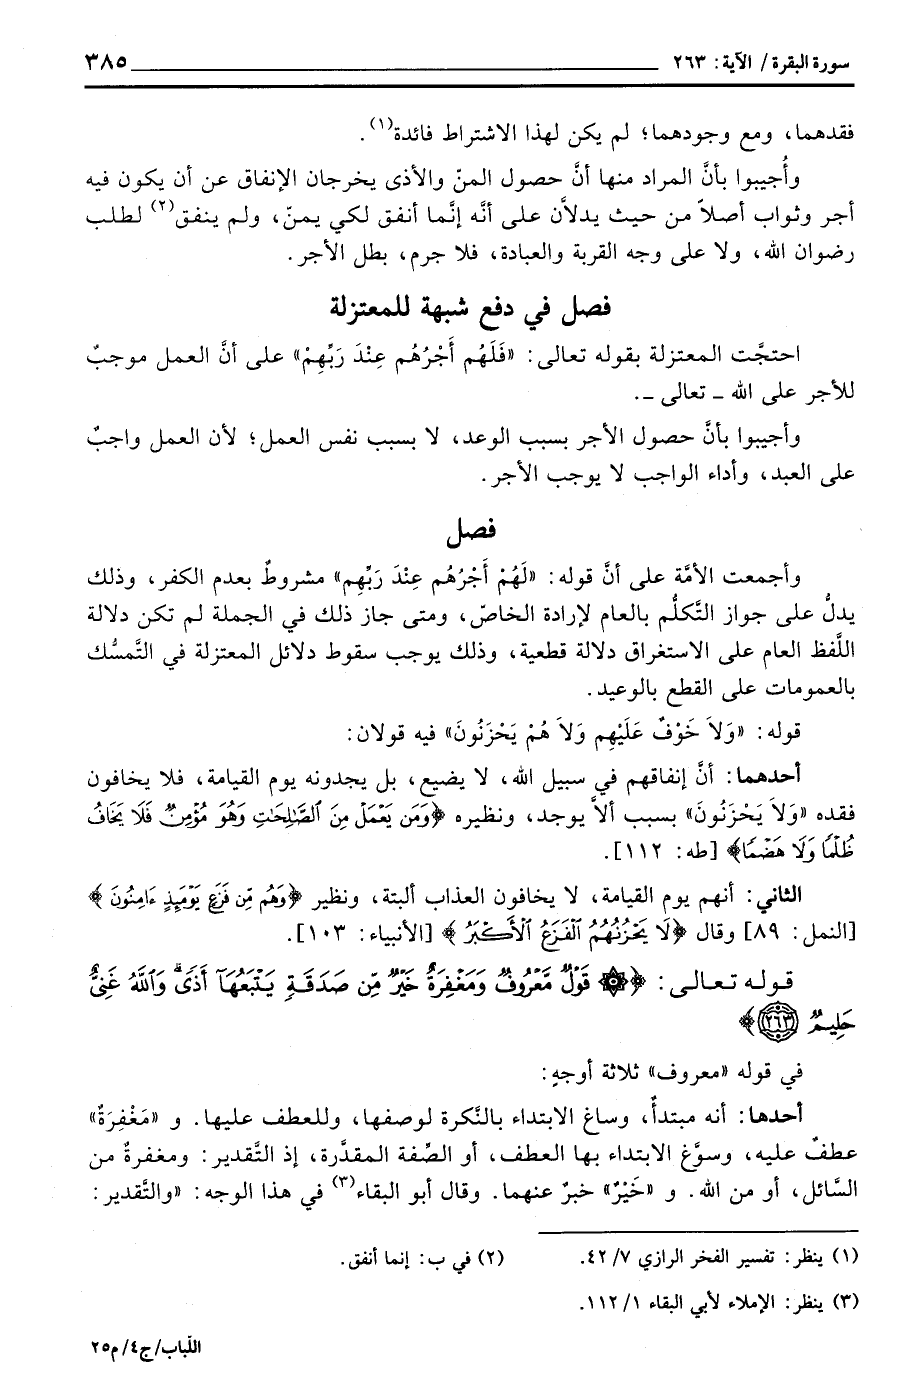 سورة البقرة/ الآية: ٢٦٣ ٣٨٥
فقدهما، ومع وجودهما؛ لم يكن لهذا الاشتراط فائدة(١).
وأُجيبوا بأنَّ المراد منها أنَّ حصول المنّ والأذى يخرجان الإنفاق عن أن يكون فيه
أجر وثواب أصلاً من حيث يدلاَّن على أنَّه إنَّما أنفق لكي يمنّ، ولم ينفق(٢) لطلب
رضوان الله، ولا على وجه القربة والعبادة، فلا جرم، بطل الأجر.
فصل في دفع شبهة للمعتزلة
احتجَّت المعتزلة بقوله تعالى: «فَلَهُم أَجْرُهُم عِنْدَ رَبِّهِمْ» على أنَّ العمل موجبٌ
للأجر على الله ـ تعالى ـ.
وأجيبوا بأنَّ حصول الأجر بسبب الوعد، لا بسبب نفس العمل؛ لأن العمل واجبٌ
على العبد، وأداء الواجب لا يوجب الأجر.
فصل
وأجمعت الأمَّة على أنَّ قوله: «لَهُمْ أَجْرُهُم عِنْدَ رَبِّهِم» مشروطٌ بعدم الكفر، وذلك
يدلُّ على جواز التَّكلُّم بالعام لإرادة الخاصّ، ومتى جاز ذلك في الجملة لم تكن دلالة
اللَّفظ العام على الاستغراق دلالة قطعية، وذلك يوجب سقوط دلائل المعتزلة في التَّمسُّك
بالعمومات على القطع بالوعيد.
قوله: «وَلاَ خَوْفٌ عَلَيْهِم وَلاَ هُمْ يَحْزَنُونَ» فيه قولان:
أحدهما: أنَّ إنفاقهم في سبيل الله، لا يضيع، بل يجدونه يوم القيامة، فلا يخافون
فقده «وَلاَ يَحْزَنُونَ» بسبب ألاَّ يوجد، ونظيره ﴿وَمَن يَعْمَلْ مِنَ ٱلصَّٰلِحَٰتِ وَهُوَ مُؤْمِنٌ فَلَا يَخَافُ
ظُلْمًا وَلَا هَضْمًا﴾ [طه: ١١٢].
الثاني: أنهم يوم القيامة، لا يخافون العذاب ألبتة، ونظير ﴿وَهُم مِّن فَزَعٍ يَوْمَئِذٍ ءَامِنُونَ﴾
[النمل: ٨٩] وقال ﴿لَا يَحْزُنُهُمُ ٱلْفَزَعُ ٱلْأَكْبَرُ﴾ [الأنبياء: ١٠٣].
قوله تعالى: ﴿۞ قَوْلٌ مَّعْرُوفٌ وَمَغْفِرَةٌ خَيْرٌ مِّن صَدَقَةٍ يَتْبَعُهَآ أَذًى ۗ وَٱللَّهُ غَنِىٌّ
حَلِيمٌ (٢٦٣)﴾
في قوله «معروف» ثلاثة أوجهٍ:
أحدها: أنه مبتدأٌ، وساغ الابتداء بالنَّكرة لوصفها، وللعطف عليها. و «مَغْفِرَةٌ»
عطفٌ عليه، وسوَّغ الابتداء بها العطف، أو الصِّفة المقدَّرة، إذ التَّقدير: ومغفرةٌ من
السَّائل، أو من الله. و «خَيْرٌ» خبرٌ عنهما. وقال أبو البقاء(٣) في هذا الوجه: «والتَّقدير:
(١) ينظر: تفسير الفخر الرازي ٧/ ٤٢. (٢) في ب: إنما أنفق.
(٣) ينظر: الإملاء لأبي البقاء ١/ ١١٢.
اللّباب/ ج٤/ م٢٥